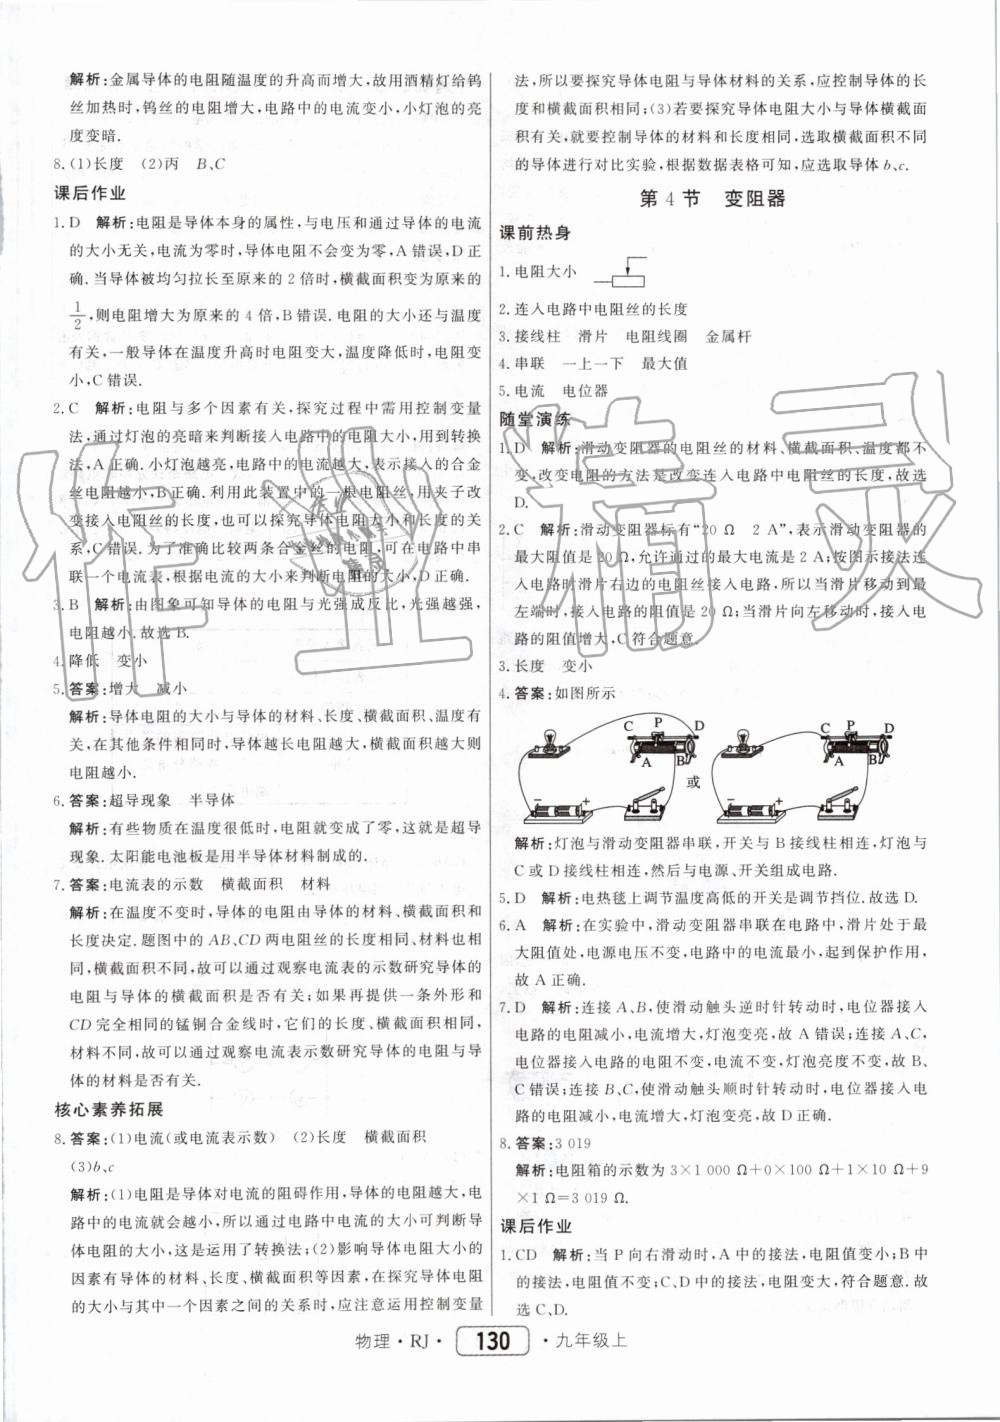 解析:金属导体的电阻随温度的升高而增大,故用酒精灯给钨
丝加热时,钨丝的电阻增大,电路中的电流变小,小灯泡的亮
度变暗.
8.(1)长度 (2)丙 B、C
课后作业
1.D 解析:电阻是导体本身的属性,与电压和通过导体的电流
的大小无关,电流为零时,导体电阻不会变为零,A错误,D正
确.当导体被均匀拉长至原来的2倍时,横截面积变为原来的
1/2,则电阻增大为原来的4倍,B错误.电阻的大小还与温度
有关,一般导体在温度升高时电阻变大,温度降低时,电阻变
小,C错误.
2.C 解析:电阻与多个因素有关,探究过程中需用控制变量
法,通过灯泡的亮暗来判断接入电路中的电阻大小,用到转换
法,A正确.小灯泡越亮,电路中的电流越大,表示接入的合金
丝电阻越小,B正确.利用此装置中的一根电阻丝,用夹子改
变接入电阻丝的长度,也可以探究导体电阻大小和长度的关系,
C错误.为了准确比较两条合金丝的电阻,可在电路中串
联一个电流表,根据电流的大小来判断电阻的大小,D正确.
3.B 解析:由图象可知导体的电阻与光强成反比,光强越强,
电阻越小.故选B.
4.降低 变小
5.答案:增大 减小
解析:导体电阻的大小与导体的材料、长度、横截面积、温度有
关,在其他条件相同时,导体越长电阻越大,横截面积越大则
电阻越小.
6.答案:超导现象 半导体
解析:有些物质在温度很低时,电阻就变成了零,这就是超导
现象.太阳能电池板是用半导体材料制成的.
7.答案:电流表的示数 横截面积 材料
解析:在温度不变时,导体的电阻由导体的材料、横截面积和
长度决定.题图中的AB、CD两电阻丝的长度相同、材料也相
同,横截面积不同,故可以通过观察电流表的示数研究导体的
电阻与导体的横截面积是否有关;如果再提供一条外形和
CD完全相同的锰铜合金线时,它们的长度、横截面积相同,
材料不同,故可以通过观察电流表示数研究导体的电阻与导
体的材料是否有关.
核心素养拓展
8.答案:(1)电流(或电流表示数) (2)长度 横截面积
(3)b、c
解析:(1)电阻是导体对电流的阻碍作用,导体的电阻越大,电
路中的电流就会越小,所以通过电路中电流的大小可判断导
体电阻的大小,这是运用了转换法;(2)影响导体电阻大小的
因素有导体的材料、长度、横截面积等因素,在探究导体电阻
的大小与其中一个因素之间的关系时,应注意运用控制变量
法,所以要探究导体电阻与导体材料的关系,应控制导体的长
度和横截面积相同;(3)若要探究导体电阻大小与导体横截面
积有关,就要控制导体的材料和长度相同,选取横截面积不同
的导体进行对比实验,根据数据表格可知,应选取导体b、c.
第4节 变阻器
课前热身
1.电阻大小
2.连入电路中电阻丝的长度
3.接线柱 滑片 电阻线圈 金属杆
4.串联 一上一下 最大值
5.电流 电位器
随堂演练
1.D 解析:滑动变阻器的电阻丝的材料、横截面积、温度都不
变,改变电阻的方法是改变连入电路中电阻丝的长度,故选
D.
2.C 解析:滑动变阻器标有“20 Ω 2 A”,表示滑动变阻器的
最大阻值是20 Ω,允许通过的最大电流是2 A;按图示接法连
入电路时滑片右边的电阻丝接入电路,所以当滑片移动到最
左端时,接入电路的阻值是20 Ω;当滑片向左移动时,接入电
路的阻值增大,C符合题意.
3.长度 变小
4.答案:如图所示
C P D
A B
− +
或
C P D
A B
− +
解析:灯泡与滑动变阻器串联,开关与B接线柱相连,灯泡与
C或D接线柱相连,然后与电源、开关组成电路.
5.D 解析:电热毯上调节温度高低的开关是调节挡位.故选D.
6.A 解析:在实验中,滑动变阻器串联在电路中,滑片处于最
大阻值处,电源电压不变,电路中的电流最小,起到保护作用,
故A正确.
7.D 解析:连接A、B,使滑动触头逆时针转动时,电位器接入
电路的电阻减小,电流增大,灯泡变亮,故A错误;连接A、C,
电位器接入电路的电阻不变,电流不变,灯泡亮度不变,故B、
C错误;连接B、C,使滑动触头顺时针转动时,电位器接入电
路的电阻减小,电流增大,灯泡变亮,故D正确.
8.答案:3 019
解析:电阻箱的示数为3×1 000 Ω+0×100+1×10 Ω+9
×1 Ω=3 019 Ω.
课后作业
1.CD 解析:当P向右滑动时,A中的接法,电阻值变小;B中
的接法,电阻值不变;C、D中的接法,电阻变大,符合题意.故
选C、D.
物理·RJ· 130 ·九年级上
作业精灵